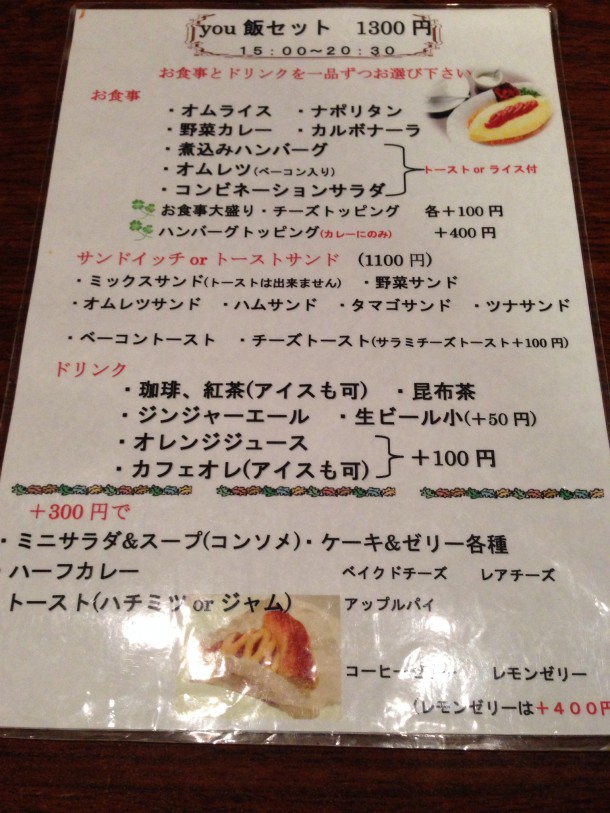 you 飯セット　1300 円
１５：００～２０：３０
お食事とドリンクを一品ずつお選び下さい
お食事
・オムライス　・ナポリタン
・野菜カレー　・カルボナーラ
・煮込みハンバーグ
・オムレツ(ベーコン入り)　トースト or ライス付
・コンビネーションサラダ
お食事大盛り・チーズトッピング　各＋100 円
ハンバーグトッピング(カレーにのみ)　＋400 円
サンドイッチ or トーストサンド　(1100 円)
・ミックスサンド(トーストは出来ません)　・野菜サンド
・オムレツサンド　・ハムサンド　・タマゴサンド　・ツナサンド
・ベーコントースト　・チーズトースト(サラミチーズトースト＋100 円)
ドリンク
・珈琲、紅茶(アイスも可)　・昆布茶
・ジンジャーエール　・生ビール小(＋50 円)
・オレンジジュース
・カフェオレ(アイスも可)　＋100 円
＋300 円で
・ミニサラダ&スープ(コンソメ)・ケーキ&ゼリー各種
・ハーフカレー　ベイクドチーズ　レアチーズ
トースト(ハチミツ or ジャム)　アップルパイ
コーヒーゼリー　レモンゼリー
(レモンゼリーは＋４００円